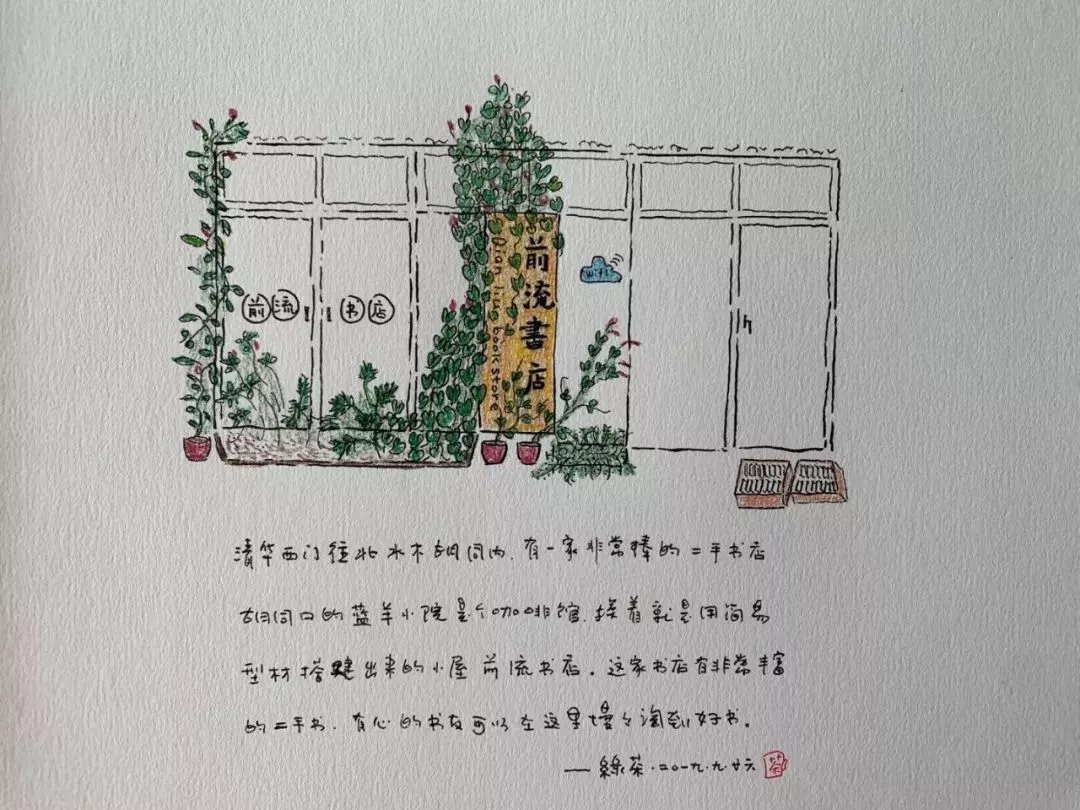 前流书店
前流書店
Qian liu bookstore
wifi
清华西门往北水木胡同内,有一家非常棒的二手书店
胡同口的蓝羊小院是个咖啡馆,挨着就是用简易
型材搭建出来的小屋前流书店。这家书店有非常丰富
的二手书,有心的书友可以在这里慢々淘到好书。
—綠茶·二〇一九·九·廿六
茶